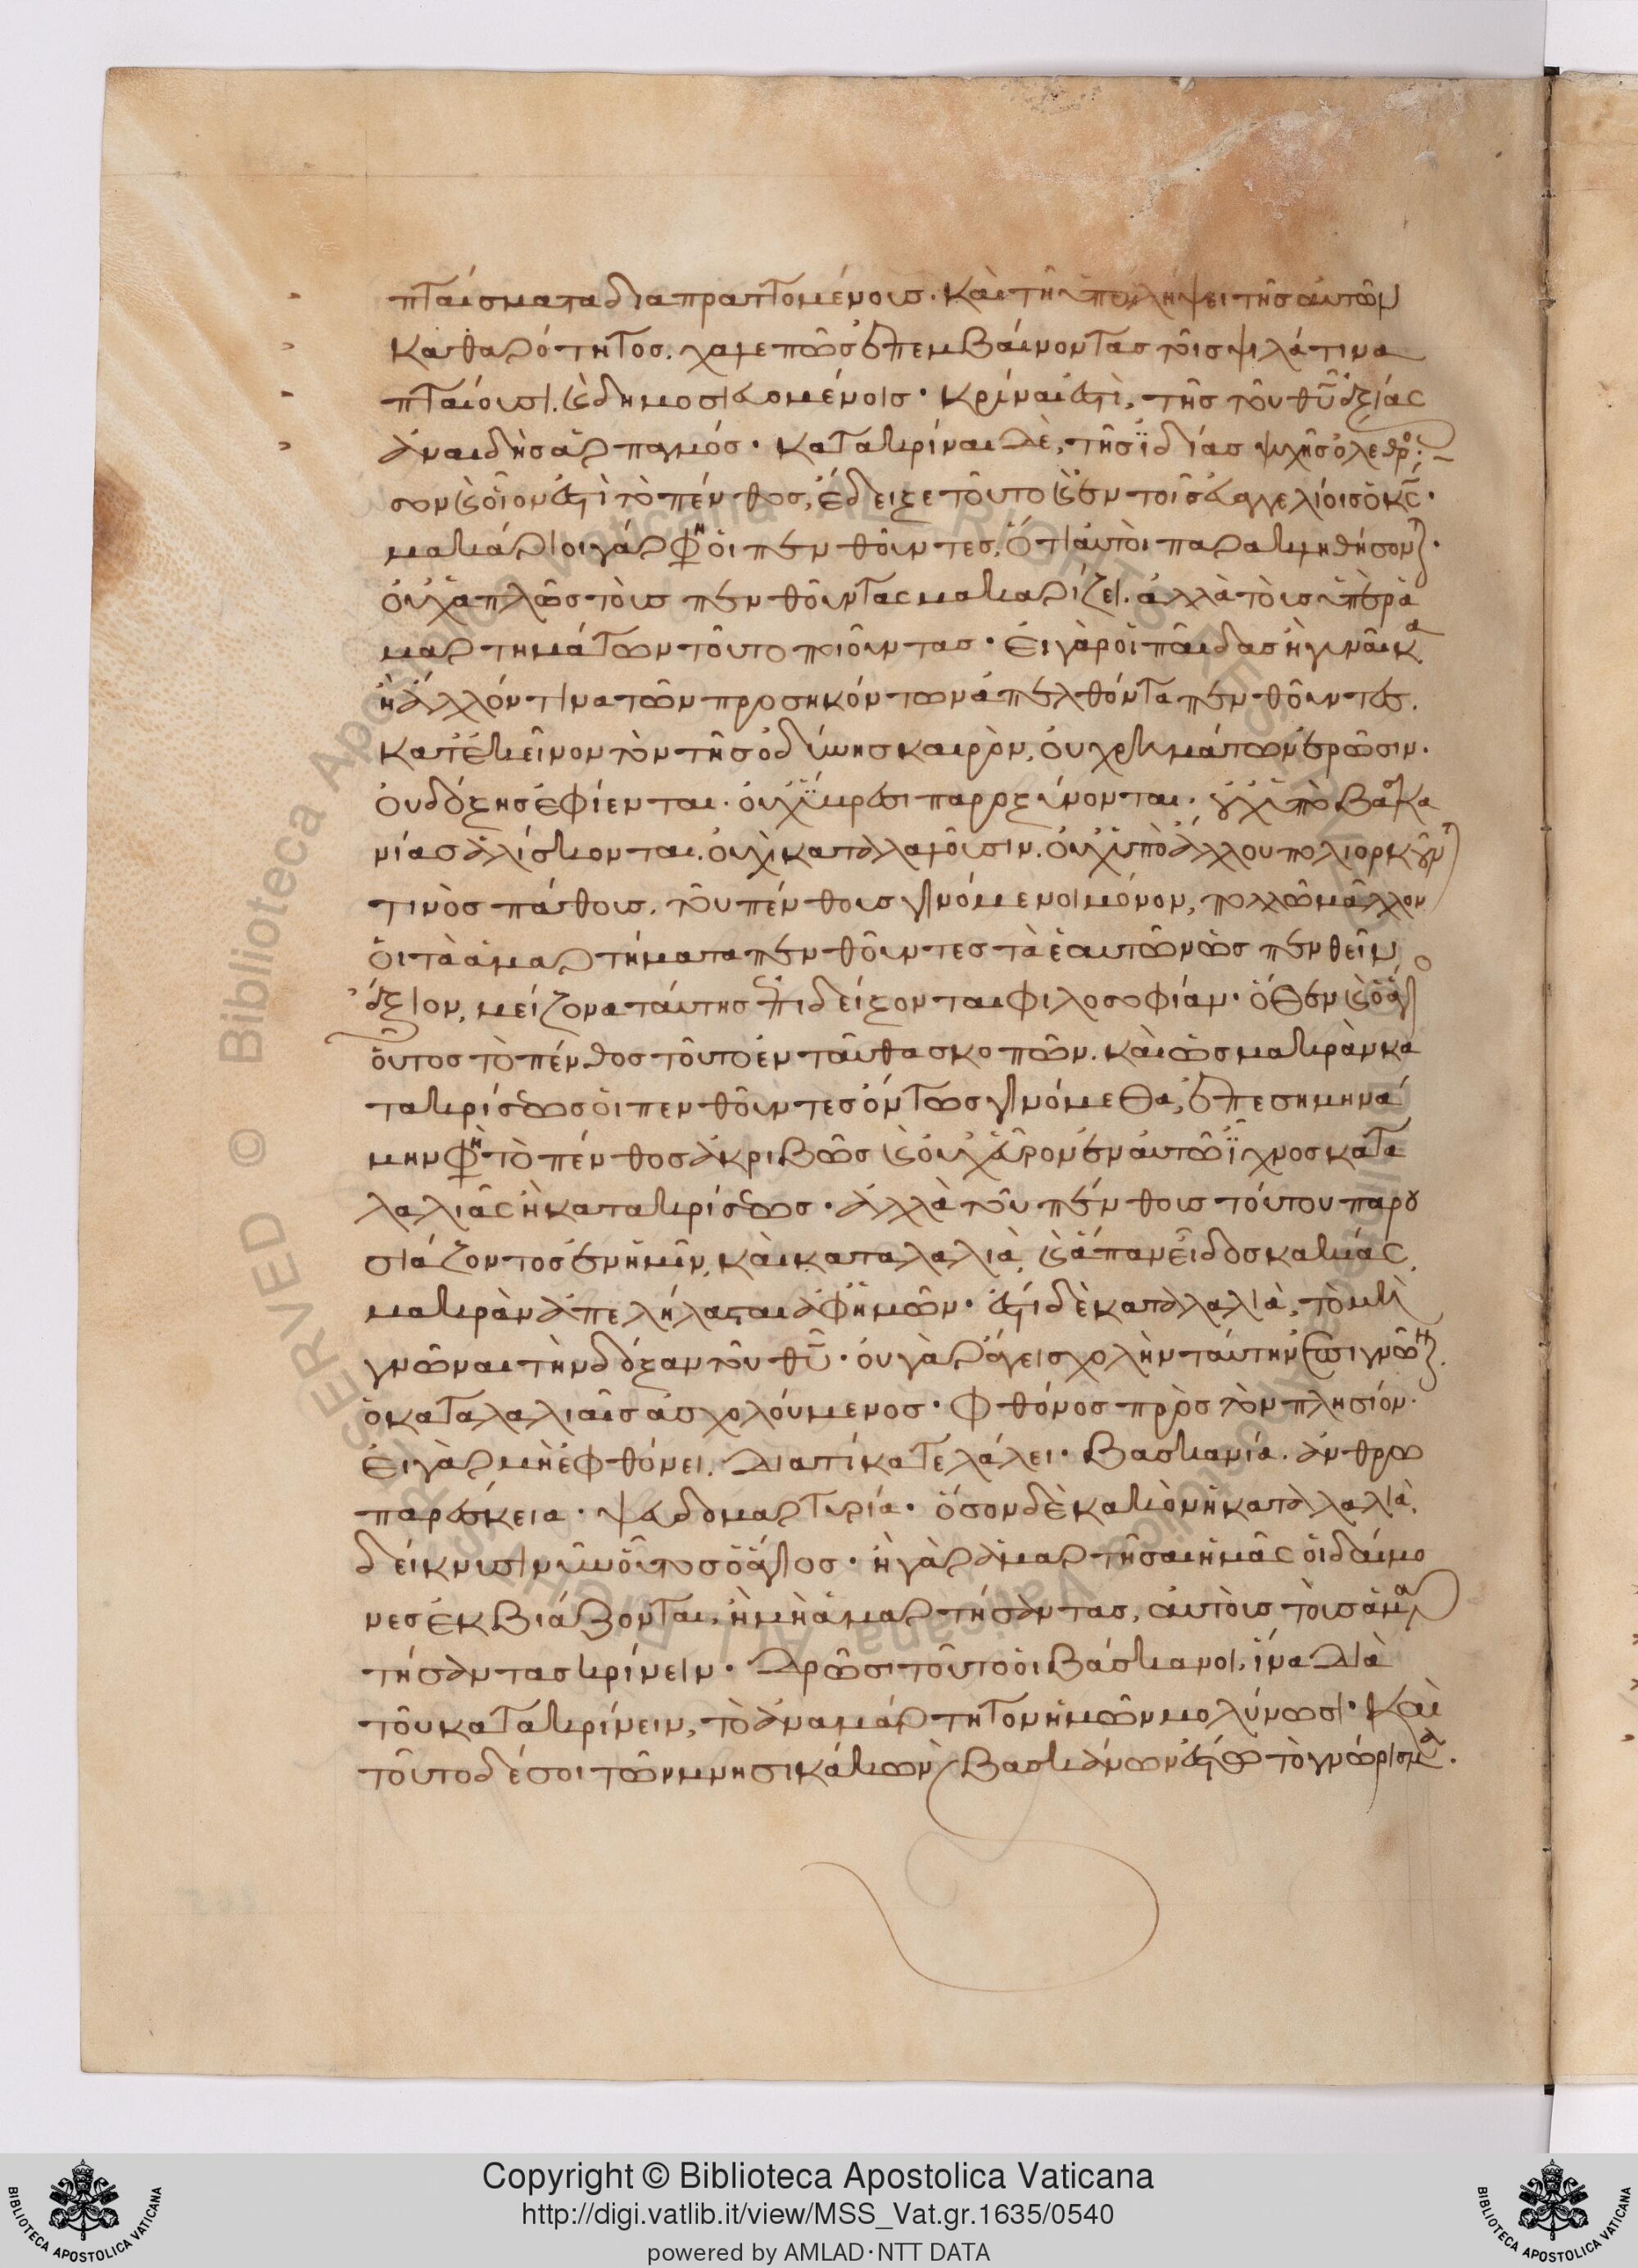 πταίσματα διαπραττομένους. καὶ τῆ ὑπολήψει τῆς αὐτῶν
καθαρότητος. χαλεπῶς ἐπεμβαίνοντας τοῖς ψιλά τινα
πταίουσι. καὶ δημοσιευομένοις. κρίναι ἐστὶ, τῆς τοῦ θῦ ἀξίας
ἀναιδὴς ἁρπαγμός. κατακρίναι δὲ, τῆς ἰδίας ψυχῆς ὄλεθρος
οἷον ἐστὶ τὸ πένθος, ἔδειξε τοῦτο καὶ ἐν τοῖς εὐαγγελίοις ὁ κς.
μακάριοι γάρ φη οἱ πενθοῦντες. ὅτι αὐτοὶ παρακληθήσονται.
οὐχ ἁπλῶς τοὺς πενθοῦντας μακαρίζει. ἀλλὰ τοὺς ὑπὲρ ἁ
μαρτημάτων τοῦτο ποιοῦντας. εἰ γὰρ οἱ παῖδας ἢ γυναῖκα
ἢ ἄλλόν τινα τῶν προσηκόντων ἀπελθόντα πενθοῦντες.
κατ' ἐκεῖνον τὸν τῆς ὀδύνης καιρὸν, οὐ χρημάτων ἐρῶσιν.
οὐ δόξης ἐφίενται. οὐχ ὕβρεσι παροξύνονται. οὐχ ὑπὸ βασκα
νίας ἁλίσκονται. οὐχὶ καταλαλοῦσιν. οὐχ ὑπὸ ἄλλου πολιορκοῦνται
τινὸς πάθους. τοῦ πένθους γινόμενοι μόνον, πολλῶ μᾶλλον
οἱ τὰ ἁμαρτήματα πενθοῦντες τὰ ἑαυτῶν ὡς πενθεῖν
ἄξιον, μείζονα ταύτης ἐπιδείξονται φιλοσοφίαν. ὅθεν καὶ ὁ ἅγιος
οὗτος τὸ πένθος τοῦτο ἐνταῦθα σκοπῶν. καὶ ὡς μακρὰν κα
τακρίσεως οἱ πενθοῦντες ὄντως γινόμεθα, ἐπεσημηνά
μην φη τὸ πένθος ἀκριβῶς καὶ οὐχ εὗρον ἐν αὐτῶ ἴχνος κατα
λαλιᾶς ἢ κατακρίσεως. ἀλλὰ τοῦ πένθους τούτου παρου
σιάζοντος ἐν ἡμῖν, καὶ καταλαλιὰ, καὶ ἅπαν εἶδος κακίας,
μακρὰν ἀπελήλαται ἀφ' ἡμῶν. ἐστὶ δὲ καταλαλιὰ, τὸ μὴ
γνῶναι τὴν δόξαν τοῦ θῦ. οὐ γὰρ ἄγει σχολὴν ταύτην ἐπιγνῶναι.
ὁ καταλαλιαῖς ἀσχολούμενος. φθόνος πρὸς τὸν πλησίον.
εἰ γὰρ μὴ ἐφθόνει. διατί κατελάλει. βασκανία. ἀνθρω
παρέσκεια. ψευδομαρτυρία. ὅσον δὲ κακὸν ἡ καταλαλιὰ.
δείκνυσιν ὑμῖν οὗτος ὁ ἅγιος. ἢ γὰρ ἁμαρτῆσαι ἡμᾶς οἱ δαίμο
νες ἐκβιάζονται, ἢ μὴ ἁμαρτήσαντας, αὐτοὺς τοὺς ἁμαρ
τήσαντας κρίνειν. δρῶσι τοῦτο οἱ βάσκανοι, ἵνα διὰ
τοῦ κατακρίνειν, τὸ ἀναμάρτητον ἡμῶν μολύνωσι. καὶ
τοῦτο δέ σοι τῶν μνησικάκων καὶ βασκάνων ἔστω τὸ γνώρισμα.
Copyright © Biblioteca Apostolica Vaticana
http://digi.vatlib.it/view/MSS_Vat.gr.1635/0540
powered by AMLAD·NTT DATA